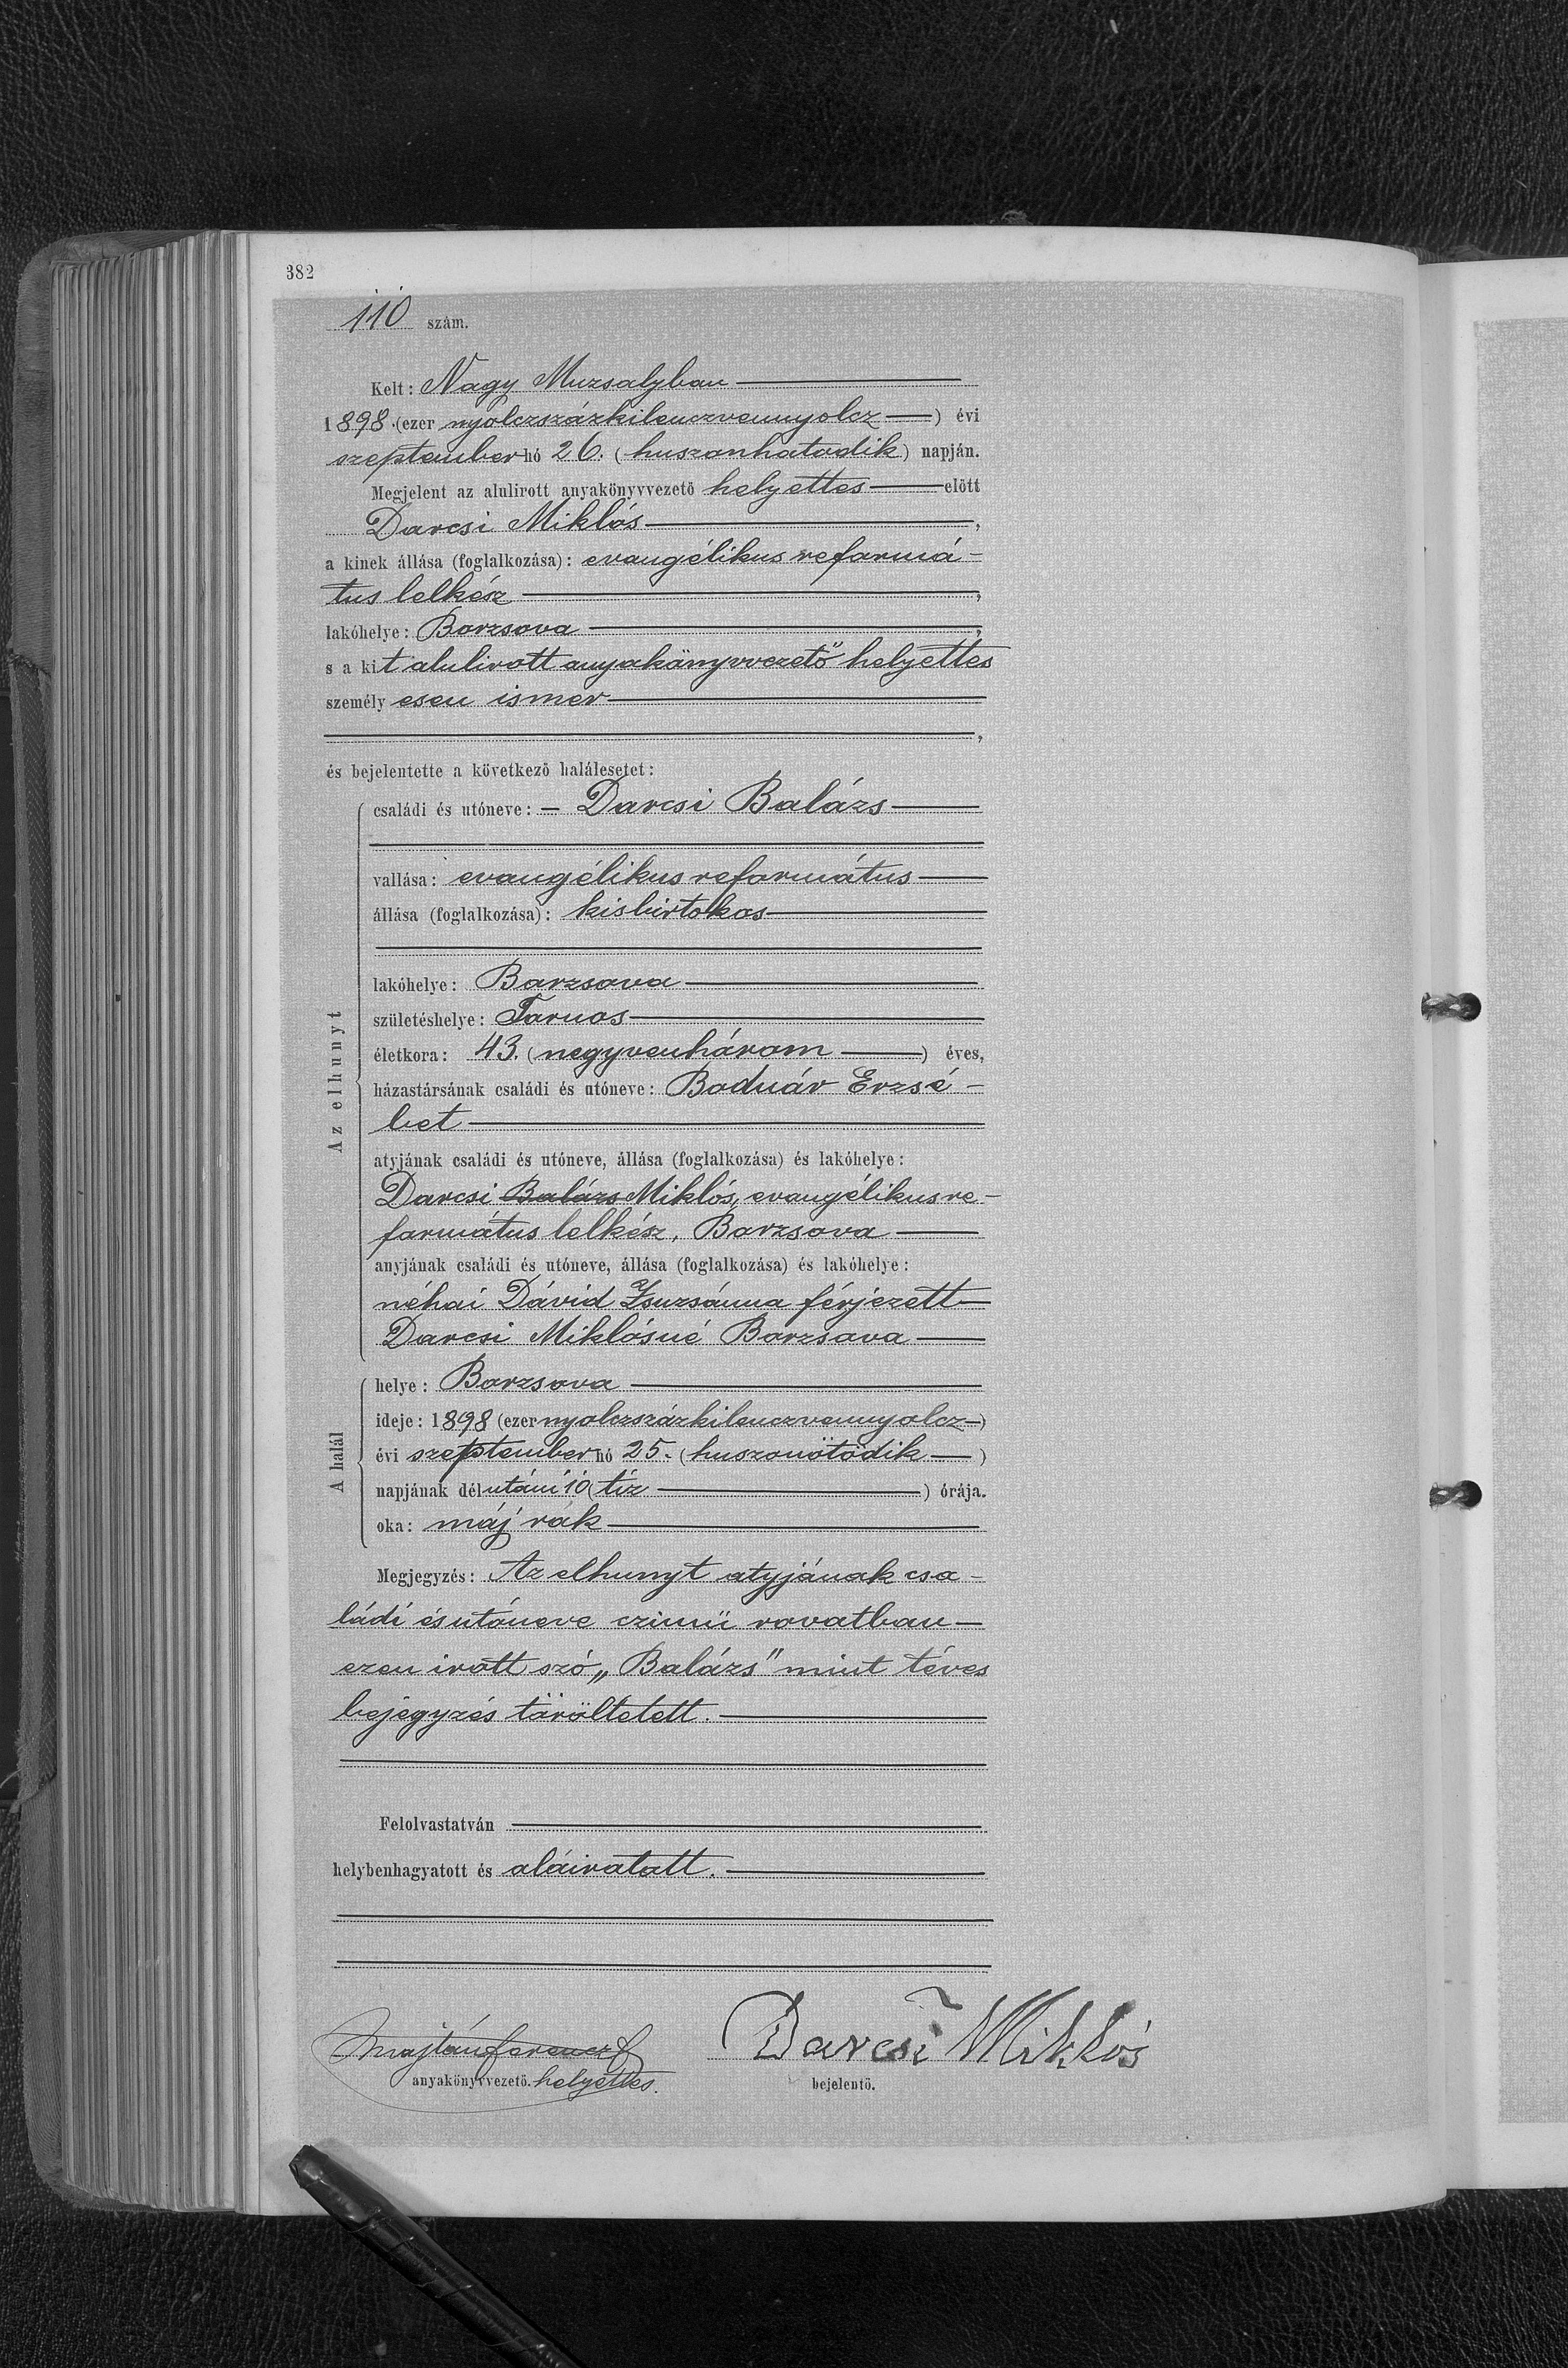 382
110 szám.
Kelt: Nagy Muzsalyban
1898. (ezer nyolczszázkilenczvennyolcz) évi
szeptember hó 26. (huszonhatodik) napján.
Megjelent az alulirott anyakönyvvezető helyettes előtt
Darcsi Miklós,
a kinek állása (foglalkozása): evangélikus reformá-
tus lelkész,
lakóhelye: Borzsova,
s a kit alulirott anyakönyvvezető helyettes
személyesen ismer
,
és bejelentette a következő halálesetet:
Az elhunyt
családi és utóneve: – Darcsi Balázs
vallása: evangélikus református
állása (foglalkozása): kisbirtokos
lakóhelye: Borzsova
születéshelye: Tarnos
életkora: 43. (negyvenhárom) éves,
házastársának családi és utóneve: Bodnár Erzsé-
bet
atyjának családi és utóneve, állása (foglalkozása) és lakóhelye:
Darcsi Balázs Miklós, evangélikus re-
formátus lelkész, Borzsova
anyjának családi és utóneve, állása (foglalkozása) és lakóhelye:
néhai Dávid Zsuzsánna férjezett
Darcsi Miklósné Borzsova
A halál
helye: Borzsova
ideje: 1898 (ezer nyolczszázkilenczvennyolcz)
évi szeptember hó 25. (huszonötödik)
napjának délutáni 10 (tíz) órája.
oka: máj rák
Megjegyzés: Az elhunyt atyjának csa-
ládi és utóneve czimü rovatban
ezen irott szó „Balázs" mint téves
bejegyzés töröltetett.
Felolvastatván
helybenhagyatott és aláiratott.
Majtán Ferencz Darcsi Miklós
anyakönyvvezető. helyettes. bejelentő.